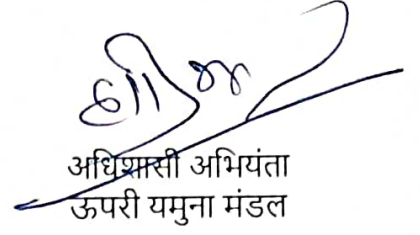 अधिशासी अभियंता
ऊपरी यमुना मंडल